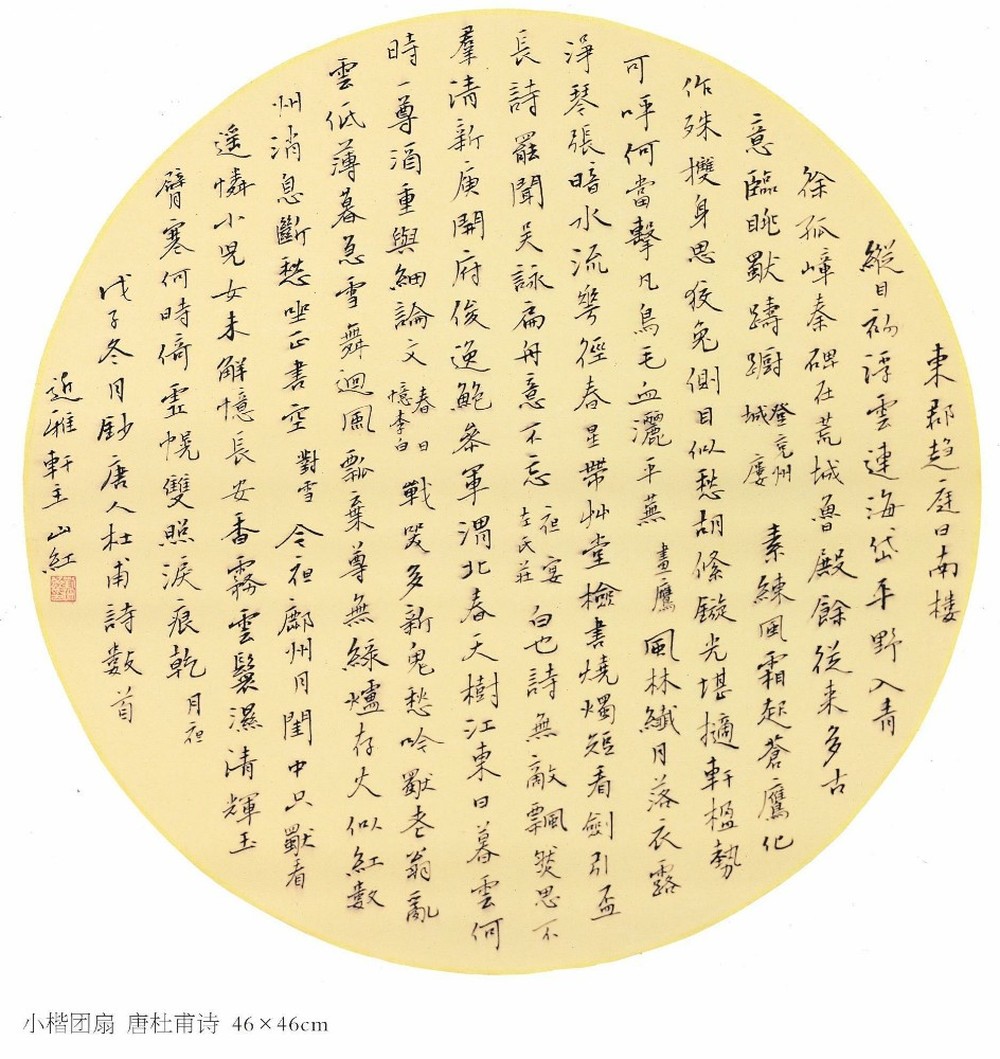 東郡趍庭日南楼
縱目初浮雲連海岱平野入青
徐孤嶂秦碑在荒城魯殿餘従来多古
意臨眺獨躊躕 登兗州城廔 素練風霜起蒼鷹化
作殊㩳身思狡兔側目似愁胡絛鏇光堪擿軒楹勢
可呼何當擊凡鳥毛血灑平蕪 畫鷹 風林纖月落衣露
淨琴張暗水流芲徑春星帶艸堂檢書燒燭短看劍引盃
長詩罷聞吳詠扁舟意不忘 亱宴左氏莊 白也詩無敵飄然思不
羣清新庾開府俊逸鮑參軍渭北春天樹江東日暮雲何
時一尊酒重與細論文 春日憶李白 戰哭多新鬼愁吟獨老翁亂
雲低薄暮急雪舞迴風瓢棄尊無綠爐存火似紅數
州消息斷愁坐正書空 對雪 今亱鄜州月閨中只獨看
遥憐小兒女未解憶長安香霧雲鬟濕清輝玉
臂寒何時倚虛幌雙照淚痕乾 月亱
戊子冬月鈔唐人杜甫詩數首
近雅軒主 山紅
小楷团扇 唐杜甫诗 46×46cm